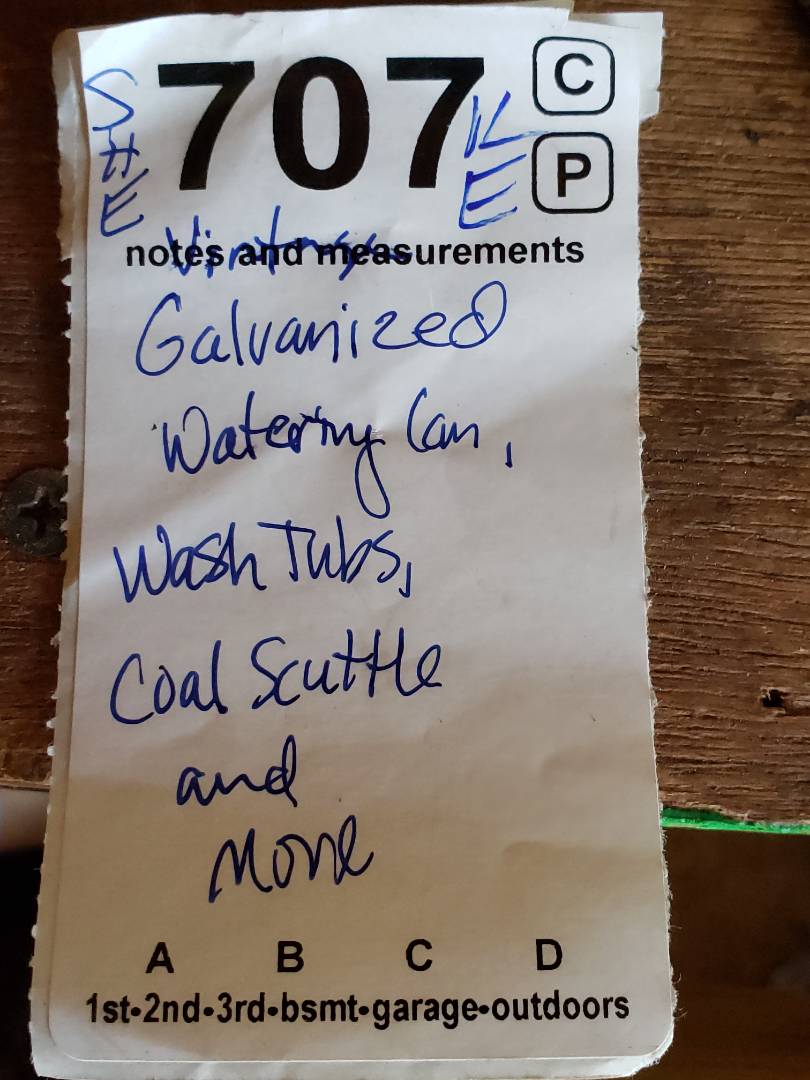 SHE 707 KE C
P
Vintage
notes and measurements
Galvanized
Watering Can,
Wash Tubs,
Coal Scuttle
and
More
A B C D
1st•2nd•3rd•bsmt•garage•outdoors